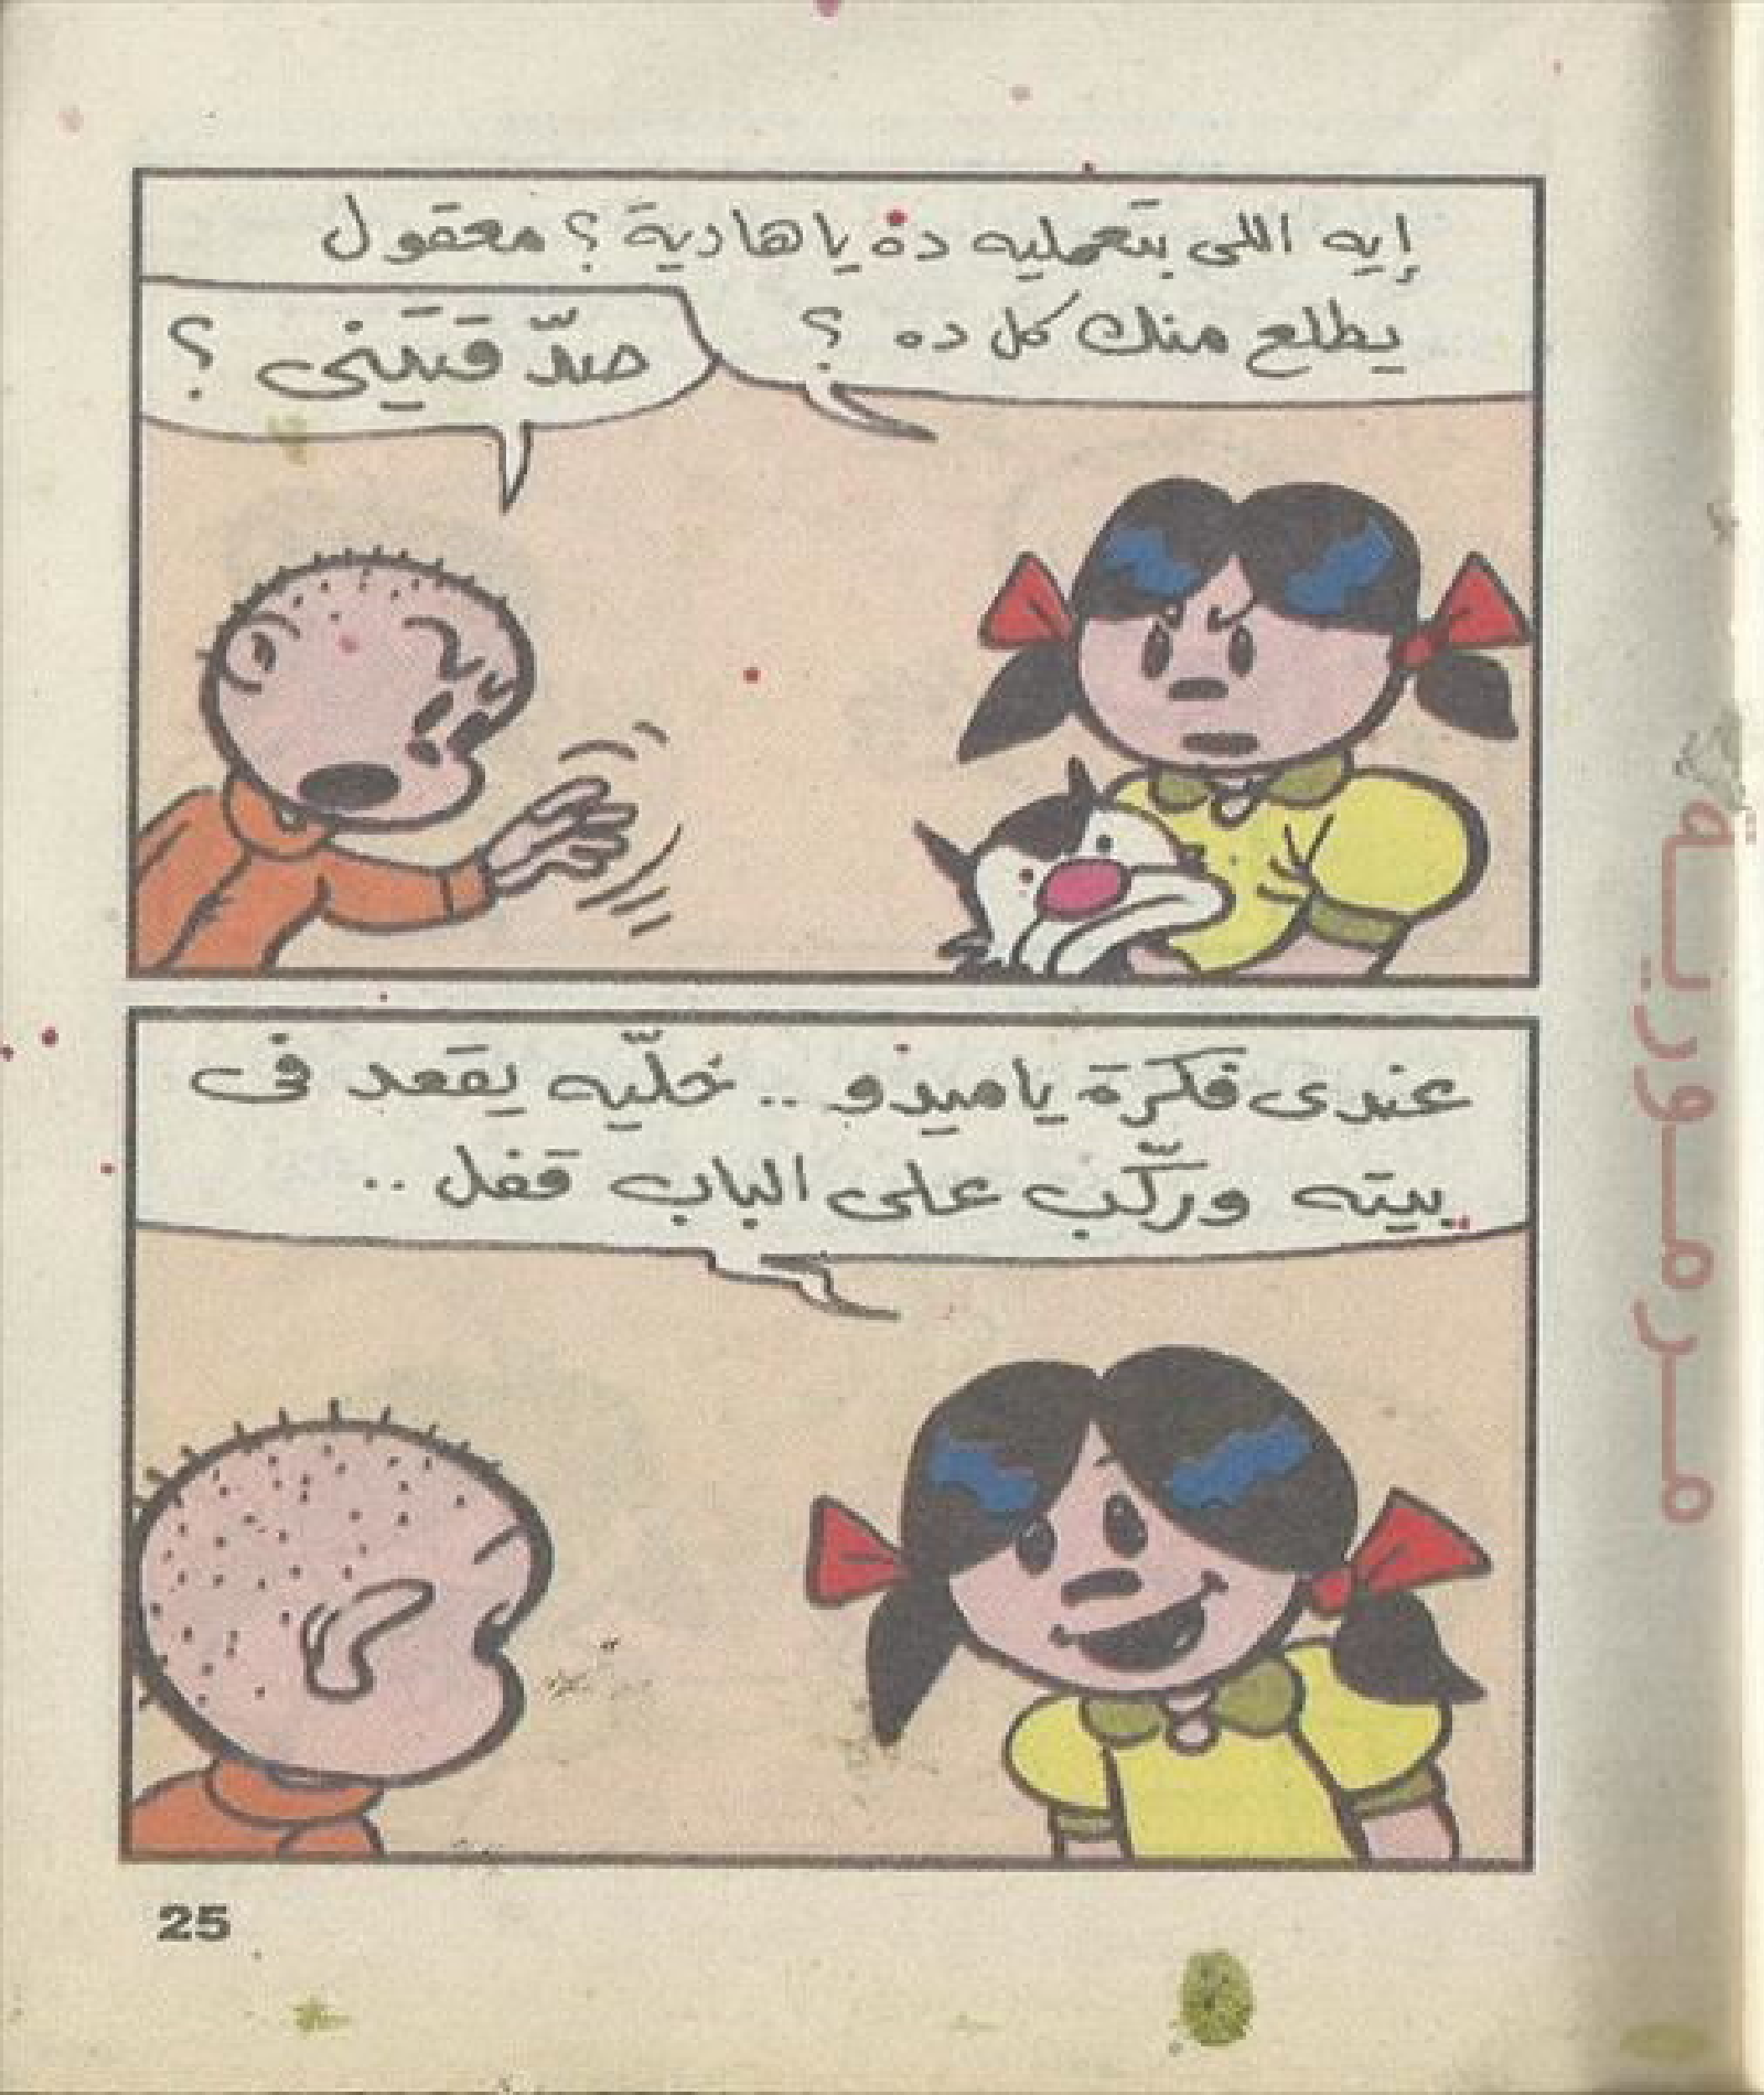 إيه اللى بتعمليه ده يا هادية؟ معقول
يطلع منك كل ده ؟
صدّقتينى ؟
عندى فكرة يا ميدو .. خلّيه يقعد فى
بيته وركّب على الباب قفل ..
25
مرمورية